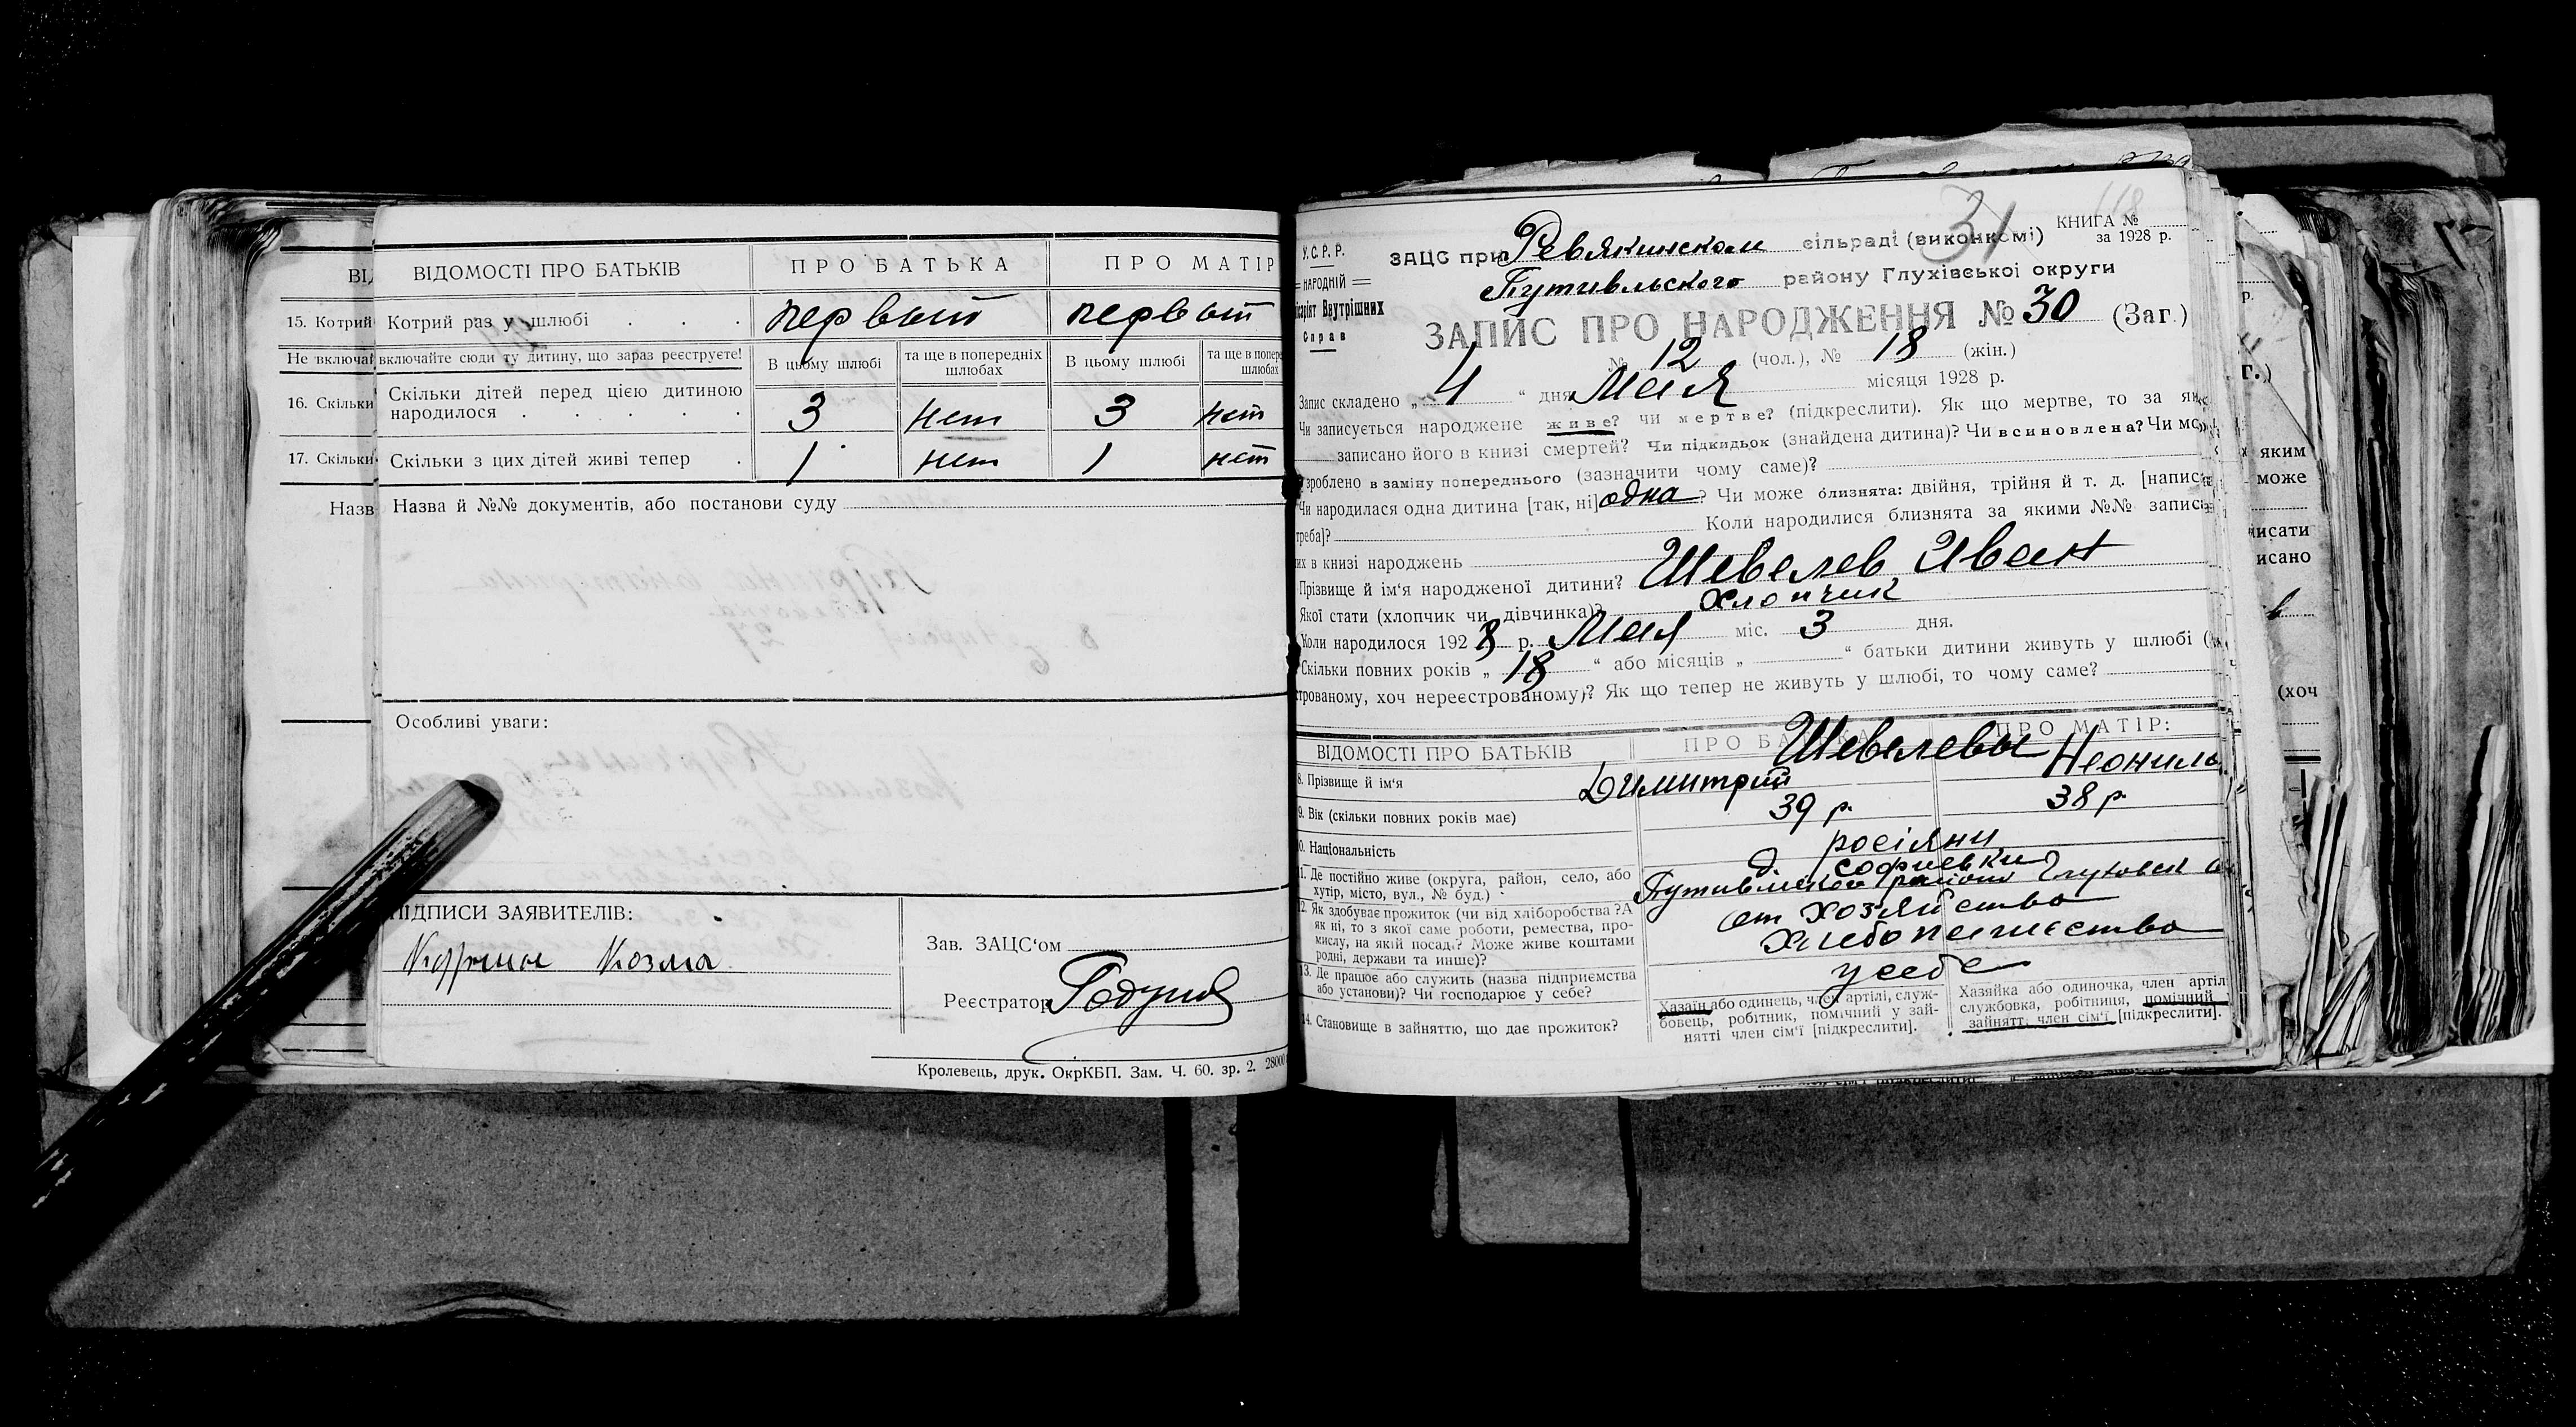 ВІДОМОСТІ ПРО БАТЬКІВ
ПРО БАТЬКА
ПРО МАТІР
15. Котрий
Котрий раз у шлюбі . . .
первый
первый
Не включай
включайте сюди ту дитину, що зараз реєструєте!
В цьому шлюбі
та ще в попередніх шлюбах
В цьому шлюбі
та ще в попере
шлюбах
16. Скільки
Скільки дітей перед цією дитиною
народилося . . . . .
3
нет
3
нет
17. Скільки
Скільки з цих дітей живі тепер .
1
нет
1
нет
Назв
Назва й №№ документів, або постанови суду
Особливі уваги:
ПІДПИСИ ЗАЯВИТЕЛІВ:
Козма
Зав. ЗАЦС‘ом
Реєстратор
Кролевець, друк. ОкрКБП. Зам. Ч. 60. зр. 2. 28000
У.С.Р.Р.
НАРОДНІЙ
Внутрішних
Справ
31
118
КНИГА №
за 1928 р.
ЗАЦС при Ревякинском сільраді (виконкомі)
Путивльского району Глухівської округи
ЗАПИС ПРО НАРОДЖЕННЯ № 30 (Заг.)
№ 12 (чол.), № 18 (жін.)
Запис складено „ 4 “ дня Мая місяця 1928 р.
Чи записується народжене живе? чи мертве? (підкреслити). Як що мертве, то за як
записано його в книзі смертей? Чи підкидьок (знайдена дитина)? Чи всиновлена? Чи мо
зроблено в заміну попереднього (зазначити чому саме)?
Чи народилася одна дитина [так, ні] одна ? Чи може близнята: двійня, трійня й т. д. [напис
треба]? Коли народилися близнята за якими №№ запис
их в книзі народжень
Прізвище й ім‘я народженої дитини? Шевелев Иван
Якої стати (хлопчик чи дівчинка)? Хлопчик
Коли народилося 1928 р. Мая міс. 3 дня.
Скільки повних років „ 18 “ або місяців „ “ батьки дитини живуть у шлюбі (
трованому, хоч нереєстрованому)? Як що тепер не живуть у шлюбі, то чому саме?
ВІДОМОСТІ ПРО БАТЬКІВ
ПРО БАТЬКА
ПРО МАТІР:
8. Прізвище й ім‘я
Шевелевы
Димитрий
Неонила
9. Вік (скільки повних років має)
39 р.
38 р.
0. Національність
росіяни
1. Де постійно живе (округа, район, село, або
хутір, місто, вул., № буд.)
д. Софиевки
Путивльского району Глуховск
2. Як здобуває прожиток (чи від хліборобства? А
як ні, то з якої саме роботи, ремества, про-
мислу, на якій посаді? Може живе коштами
родні, держави та инше)?
от хозяйства
Хлебопашества
13. Де працює або служить (назва підприємства
або установи)? Чи господарює у себе?
у себе
14. Становище в зайняттю, що дає прожиток?
Хазаїн або одинець, член артілі, служ-
бовець, робітник, помічний у зай-
нятті член сім‘ї [підкреслити].
Хазяйка або одиночка, член артіл
службовка, робітниця, помічний
зайнятт. член сім‘ї [підкреслити].
р.
Г.)
яким
може
исати
исано
(хоч